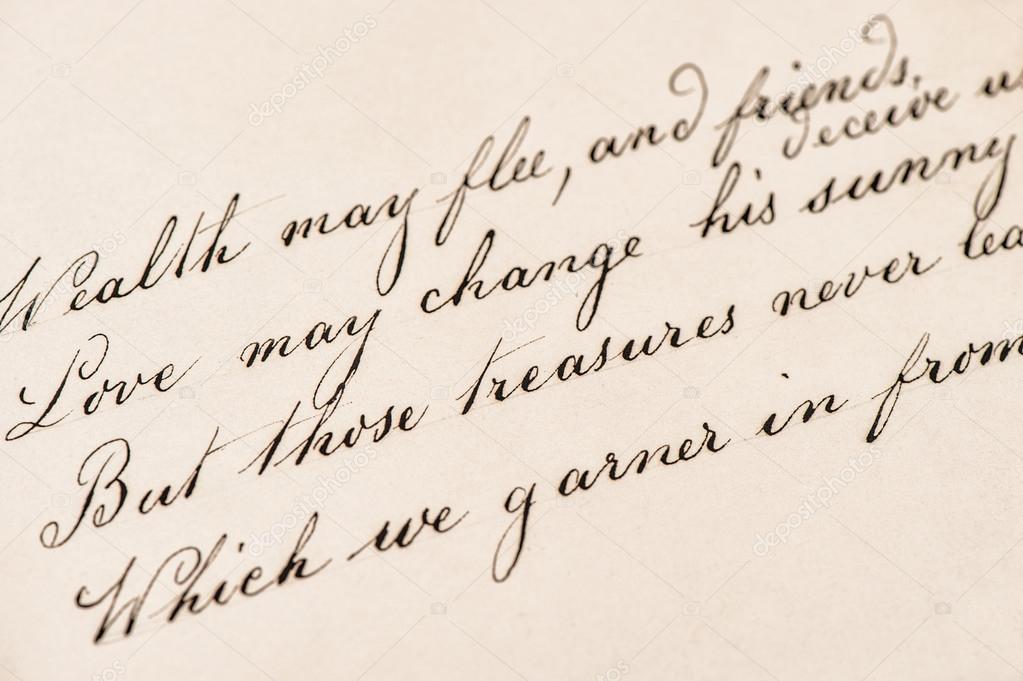 Wealth may flee, and friends,
deceive
Love may change his sunny
But those treasures never
Which we garner in from